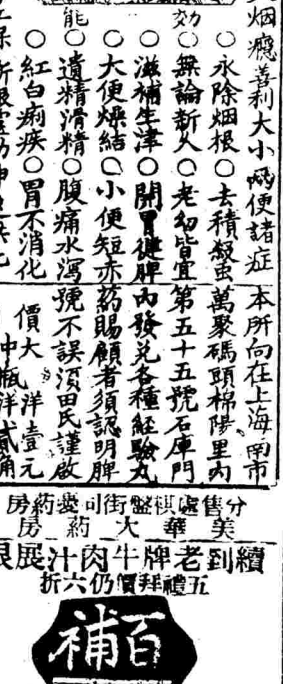 効能
烟癮善利大小便諸症
○永除烟根○去積殺虫
○無論新久○老幼皆宜
○滋補生津○開胃健脾
○大便燥結○小便短赤
○遺精滑精○腹痛水瀉
○紅白痢疾○胃不消化
本所向在上海南市
萬聚碼頭棉陽里内
第五十五號石庫門
内發兌各種経驗丸
药賜顧者須認明牌
號不誤須田氏謹啟
價大瓶洋壹元
中瓶洋貳角
分售處棋盤街可愛药房
美華大药房
續到老牌牛肉汁展限
五禮拜價仍六折
百補